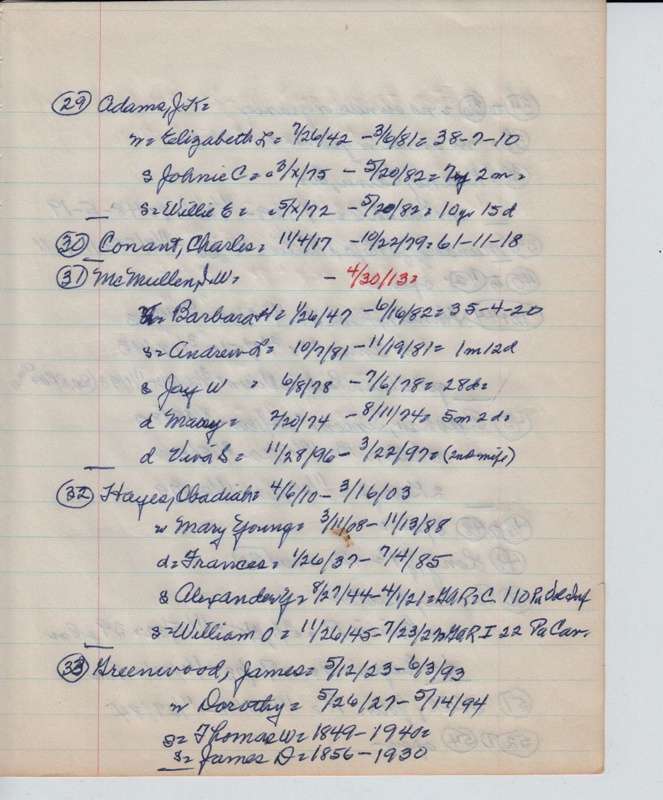 (29) Adams, J.K=
w= Elizabeth L= 7/26/42 - 3/6/81= 38-7-10
s Johnie C= a 3/x/75 - 5/20/82= 7y 2m=
s= Willie E= a 5/x/72 - 5/20/82= 10yr 15d
(30) Conant, Charles= 11/4/17 - 10/22/79= 61-11-18
(31) McMullen, J.W= - 4/30/13=
w= Barbara H= 1/26/47 - 6/16/82= 35-4-20
s= Andrew L= 10/7/81 - 11/19/81= 1m12d
s Jay W = 6/8/78 - 7/6/78= 28d=
d Mary= 2/20/74 - 8/11/74= 5m2d=
d Viva S= 11/28/96 - 3/22/97= (2nd wife)
(32) Hayes, Obadiah= 4/6/10 - 3/16/03
w Mary Young= 3/11/08 - 11/13/88
d= Frances= 1/26/37 - 7/4/85
s Alexander Y= 8/27/44 - 4/1/21= GAR= C 110 Pa Vol Inf
s= William O= 11/26/45 - 7/23/23= GAR I 22 Pa Cav.
(33) Greenwood, James= 5/12/23 - 6/3/93
w Dorothy= 5/26/27 - 5/14/94
s= Thomas W= 1849 - 1940=
s= James D= 1856 - 1930